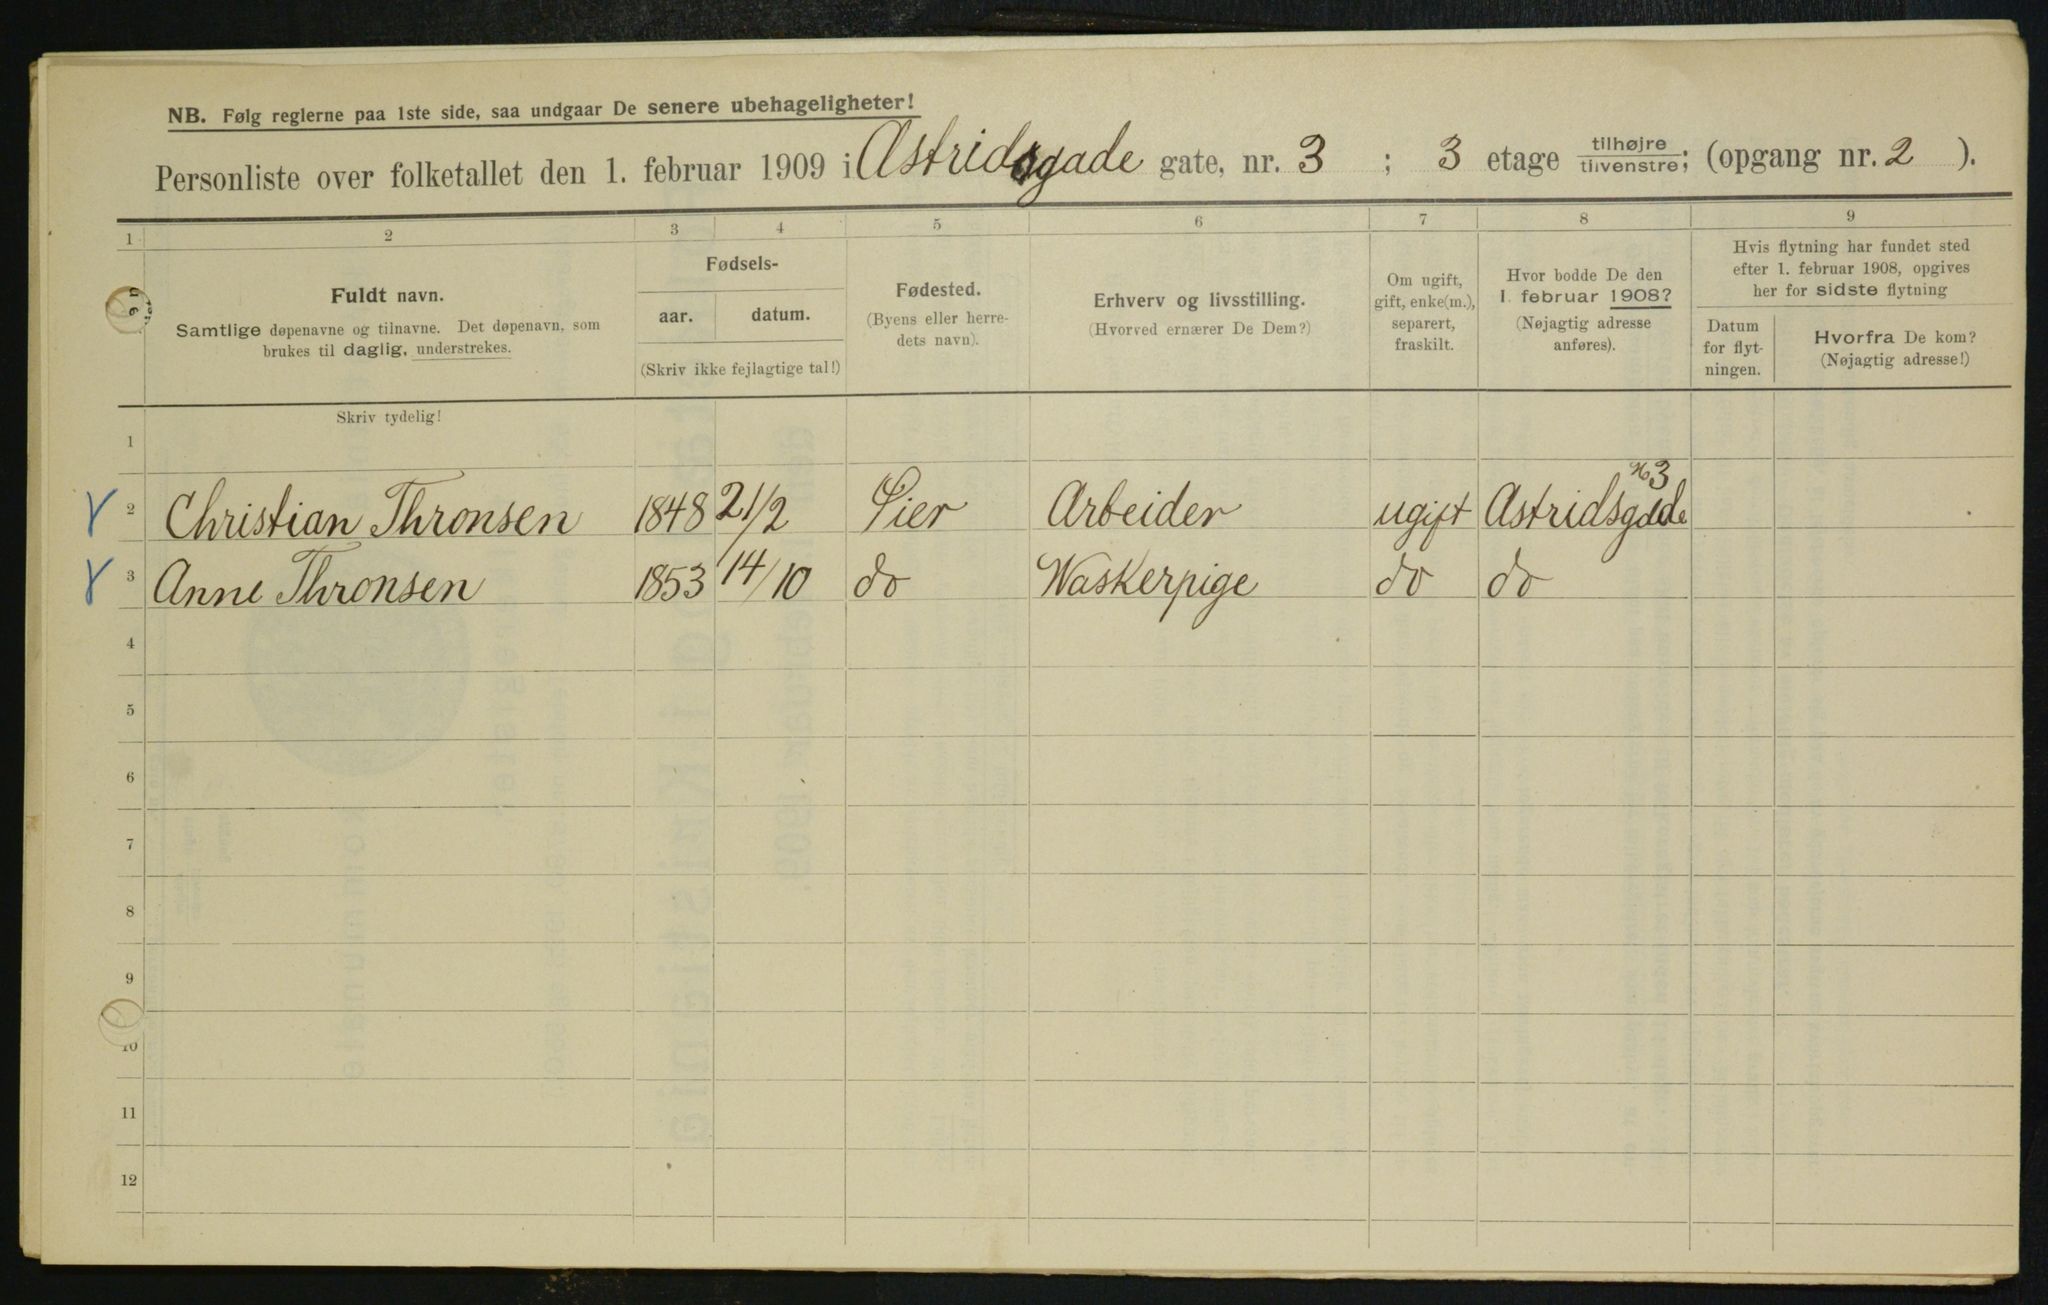 NB. Følg reglerne paa 1ste side, saa undgaar De senere ubehageligheter!
Personliste over folketallet den 1. februar 1909 i Astridsgade gate, nr. 3 ; 3 etage tilhøjre tilvenstre; (opgang nr. 2 ).
1 2 3 4 5 6 7 8 9
Fuldt navn.
Samtlige døpenavne og tilnavne. Det døpenavn, som
brukes til daglig, understrekes.
Fødsels-
aar. datum.
(Skriv ikke fejlagtige tal!)
Fødested.
(Byens eller herre-
dets navn).
Erhverv og livsstilling.
(Hvorved ernærer De Dem?)
Om ugift,
gift, enke(m.),
separert,
fraskilt.
Hvor bodde De den
1. februar 1908?
(Nøjagtig adresse
anføres).
Hvis flytning har fundet sted
efter 1. februar 1908, opgives
her for sidste flytning
Datum
for flyt-
ningen.
Hvorfra De kom?
(Nøjagtig adresse!)
Skriv tydelig!
1
2 Christian Thronsen 1848 21/2 Øier Arbeider ugift Astridsgade No 3
3 Anne Thronsen 1853 14/10 do Waskerpige do do
4
5
6
7
8
9
10
11
12